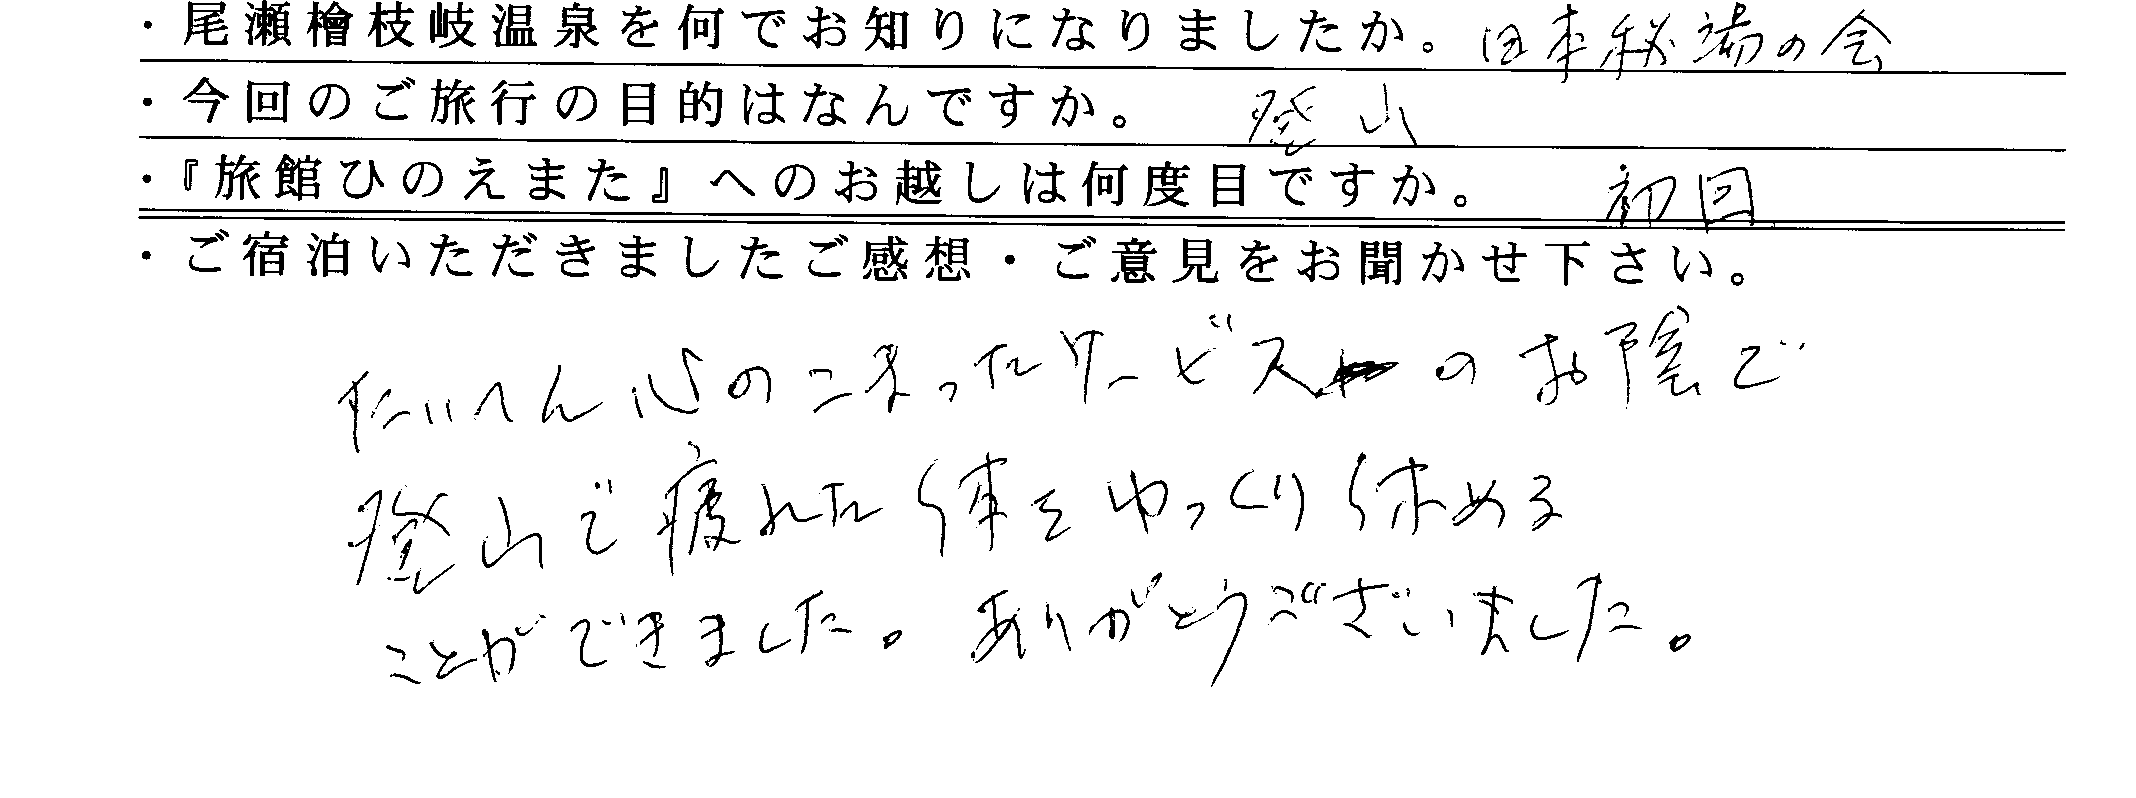 ・尾瀬檜枝岐温泉を何でお知りになりましたか。 日本秘湯の会
・今回のご旅行の目的はなんですか。 登山
・『旅館ひのえまた』へのお越しは何度目ですか。 初回
・ご宿泊いただきましたご感想・ご意見をお聞かせ下さい。
たいへん心のこまったサービスのお陰で
登山で疲れた体をゆっくり休める
ことができました。ありがとうございました。